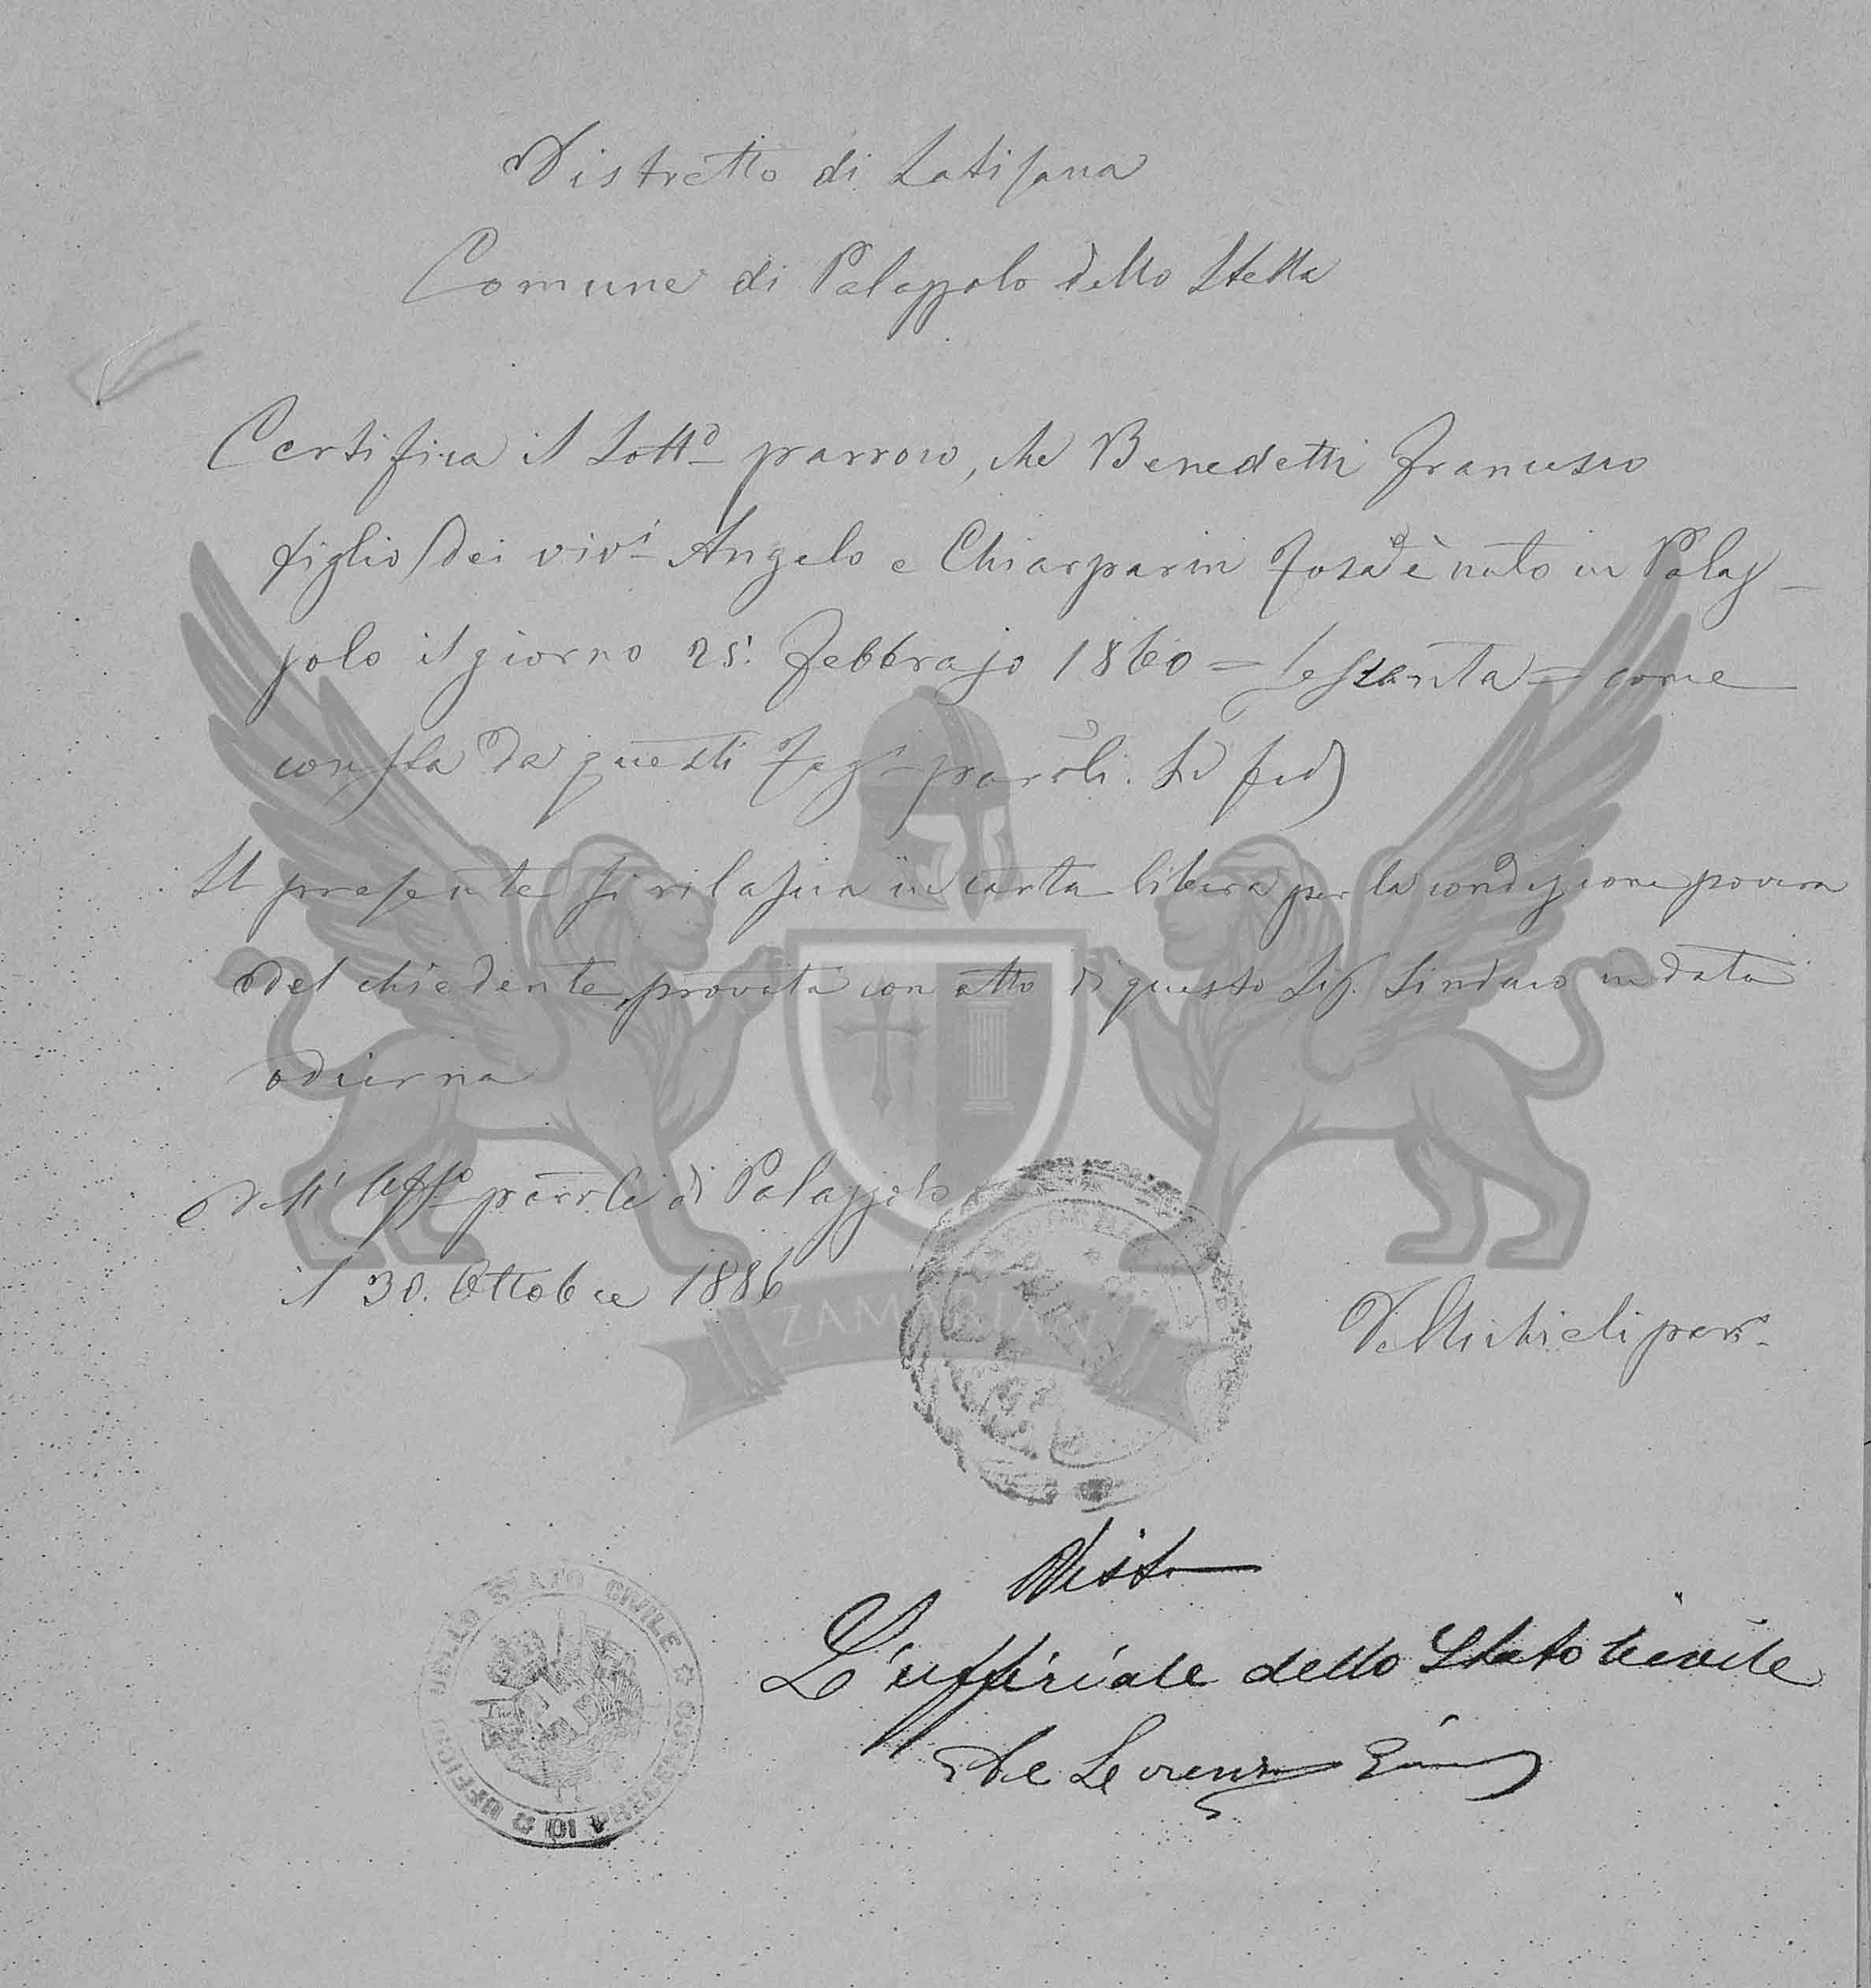 Distretto di Latisana
Comune di Palazzolo dello Stella
Certifica il Sotto parroco, che Benedetti Francesco
figlio dei vivi Angelo e Chiarparin Rosa è nato in Palaz-
zolo il giorno 25. Febbrajo 1860 = sessanta = come
consta da questi Regi parroli. In fede
Il presente si rilascia in carta libera per la condizione povera
del chiedente provata con atto di questo Sig. Sindaco in data
odierna
Dall' Uffo parrole di Palazzolo
il 30. Ottobre 1886
De Michieli parr.
ZAMARIAN
Visto
L'uffiziale dello Stato Civile
De Lorenzo
UFFICIO DELLO STATO CIVILE